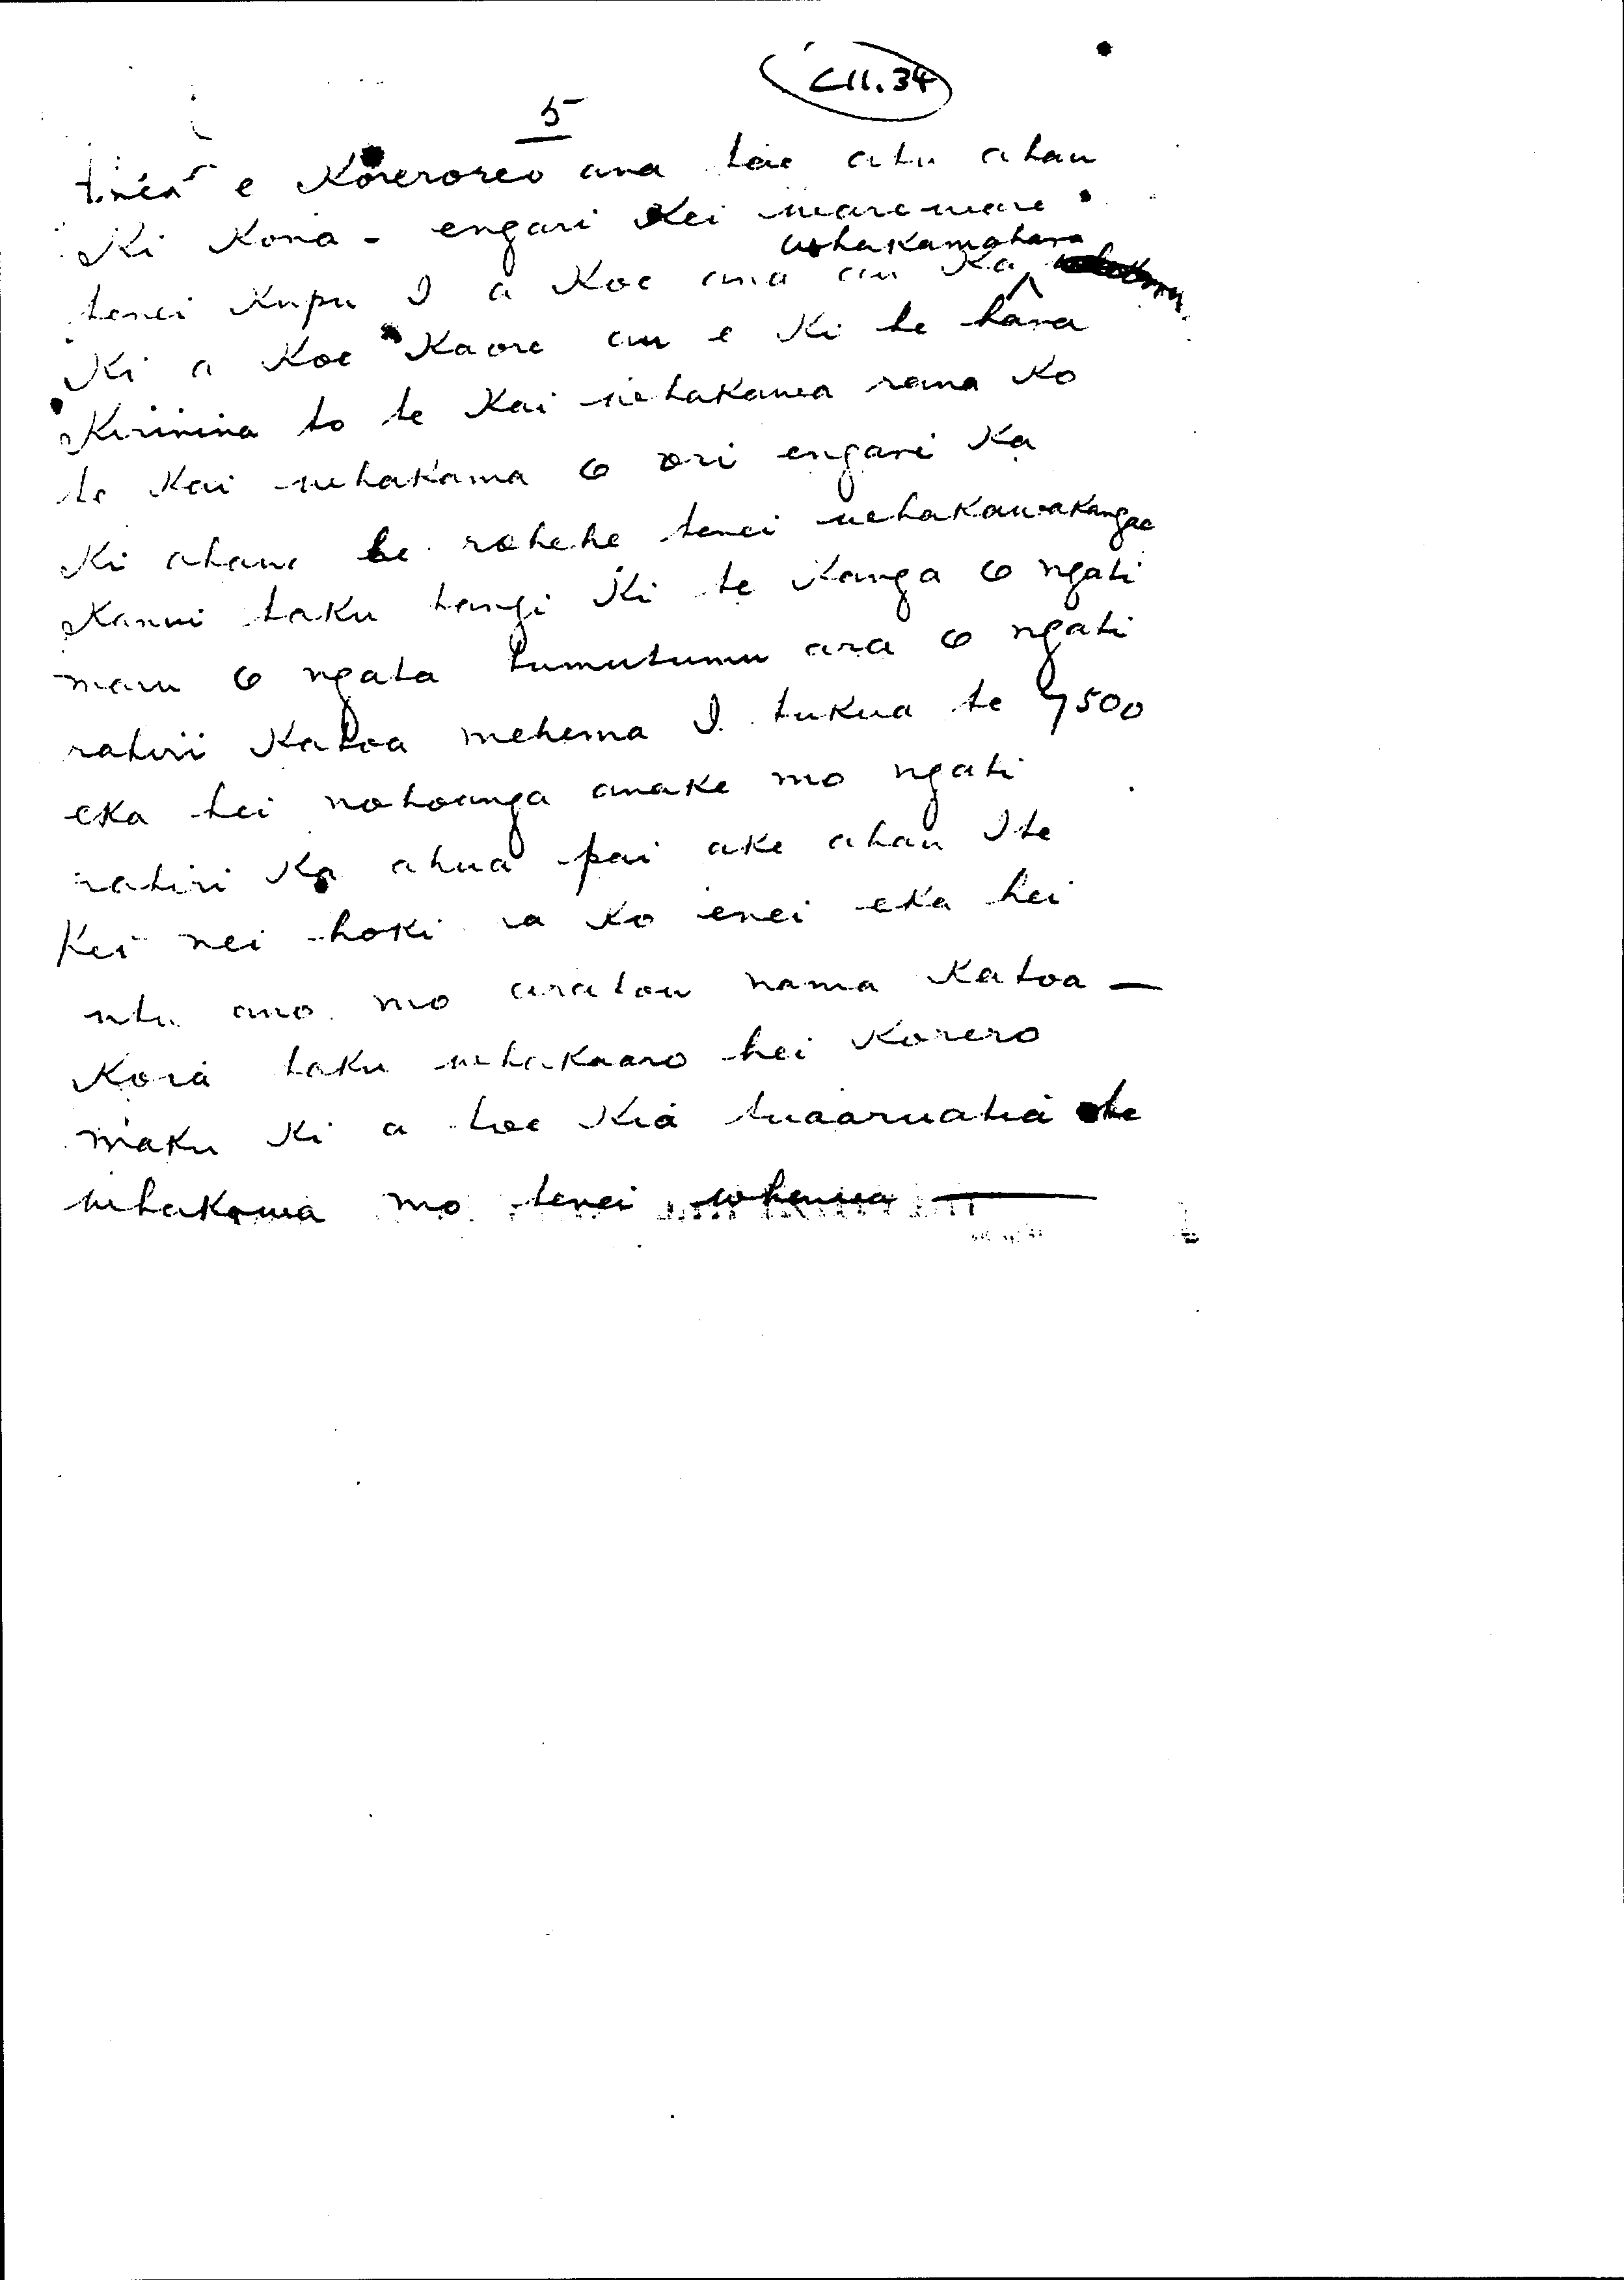 C11.34
5
e Koreroreo ana hoe atu ahau
Ki Kona - engari Kei waremare
whakamahara
tenei Kupu I a Koe ana au Ka
Ki a Koe Kaore au e Ki te hara
Kirinina to te Kai whakawa rana Ko
te Kai whakama o ori engari Ka
Ki ahau he rahehe tenei whakawakangae
Kanui taku tangi Ki te Kanga o ngati
maru o ngata tumutumu ara o ngati
ratiri Katoa mehema I tukua te 7500
eka hei nohoanga anake mo ngati
ratiri Ka ahua pai ake ahau I te
Kei nei hoki ra Ko enei eka hei
utu ano mo aratou nama Katoa —
Kora taku whakaaro hei Korero
maku Ki a hoe Kia tuaaruatia te
whakawa mo tenei whenua —